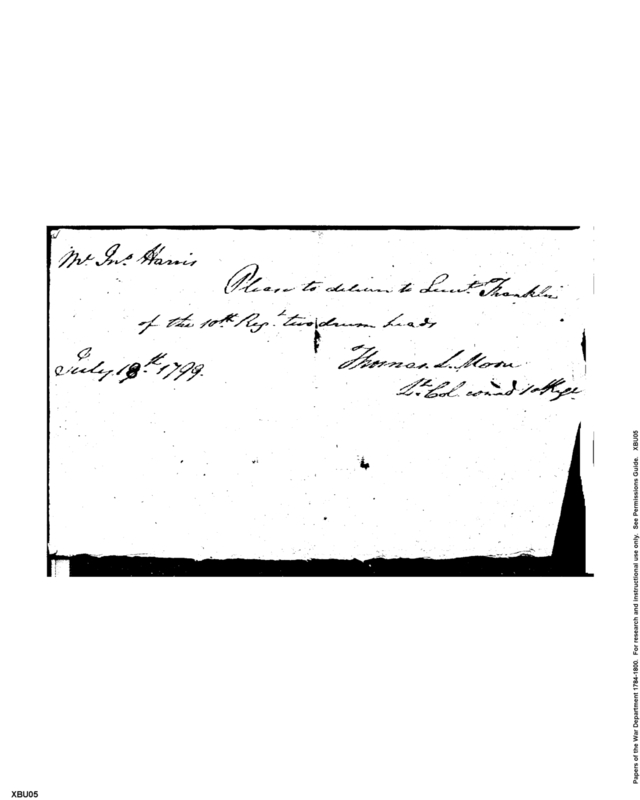 Mr. Jno. Harris
Please to deliver to Lieut. Franklin
of the 10th Regt. two drum heads
July 18th. 1799.
Thomas. L. Moore
Lt. Col. comd 10 Regt
Papers of the War Department 1784-1800. For research and instructional use only. See Permissions Guide. XBU05
XBU05